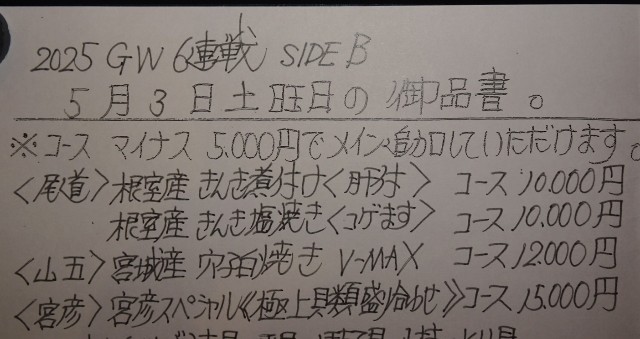 2025 GW 6連戦 SIDE B
5月3日土曜日の御品書。
※コース マイナス 5.000円でメイン追加していただけます。
〈尾道〉根室産 きんき煮付け〈肝付〉 コース 10.000円
根室産 きんき塩焼き〈コゲます〉 コース 10.000円
〈山五〉宮城産 穴子白焼き V-MAX コース 12.000円
〈宮彦〉宮彦スペシャル《極上貝類盛り合わせ》コース 15.000円